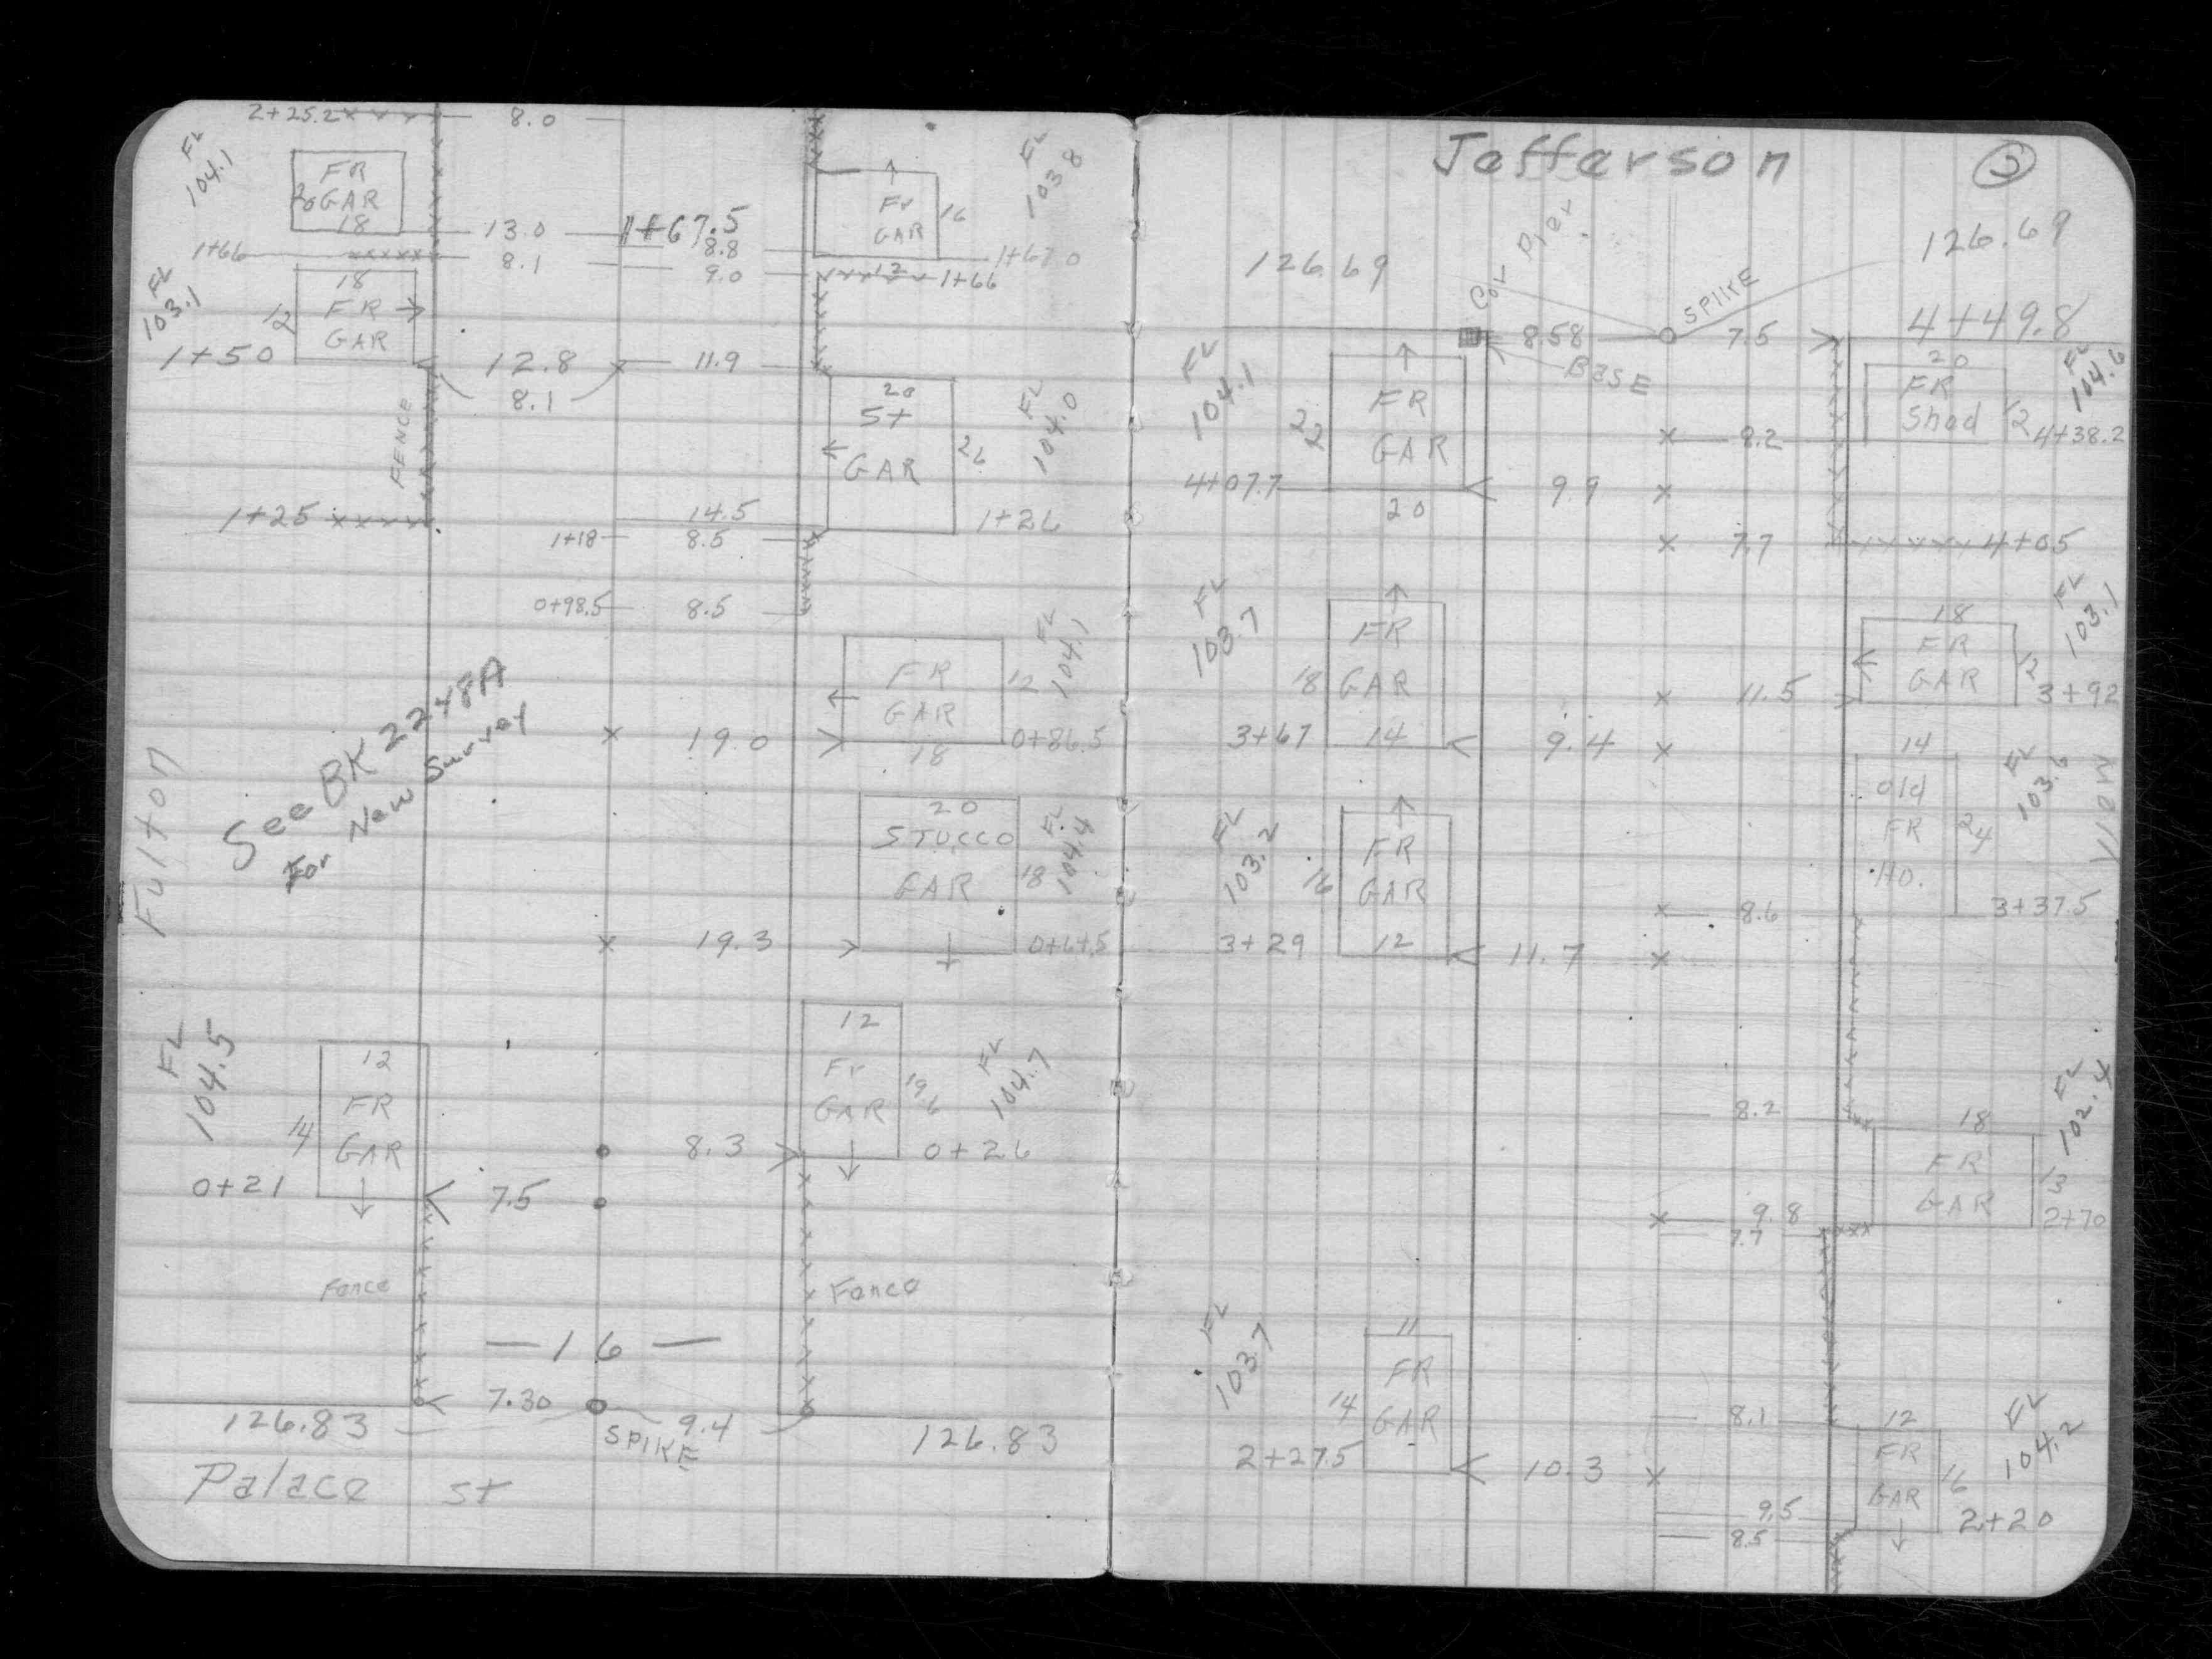 2+25.2
8.0
FL
104.1
FR
GAR
18
20
FL
103.8
Fr
GAR
16
12
13.0
1+67.5
8.8
1+67.0
1+66
8.1
9.0
1+66
FL
103.1
18
FR
GAR
12
1+50
12.8
11.9
8.1
FENCE
20
St
GAR
26
FL
104.0
1+25
14.5
1+26
1+18
8.5
0+98.5
8.5
FR
GAR
12
18
FL
104.1
19.0
0+86.5
See BK 2248A
For New Survey
Fulton
20
STUCCO
GAR
18
FL
104.4
19.3
0+64.5
FL
104.5
12
FR
GAR
14
0+21
7.5
12
Fr
GAR
19.6
FL
104.7
8.3
0+26
Fence
Fence
16
7.30
9.4
SPIKE
126.83
126.83
Palace St
Jefferson
126.69
Cor Pier
SPIKE
126.69
8.58
7.5
4+49.8
BASE
FL
104.1
FR
GAR
22
20
4+07.7
9.9
20
FR
Shed
12
FL
104.6
8.2
4+38.2
7.7
4+05
FL
103.7
FR
GAR
18
14
3+67
9.4
18
FR
GAR
12
FL
103.1
11.5
3+92
14
old
FR
Ho.
24
FL
103.6
8.6
3+37.5
FL
103.2
FR
GAR
16
12
3+29
11.7
8.2
18
FR
GAR
13
FL
102.4
9.8
2+70
7.7
FL
103.7
11
FR
GAR
14
2+27.5
10.3
8.1
12
FR
GAR
16
FL
104.2
9.5
2+20
8.5